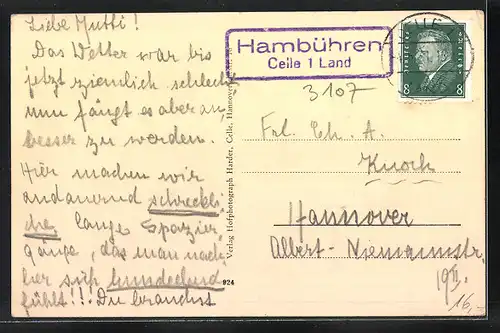 Liebe Mutti!
Das Wetter war bis
jetzt ziemlich schlecht
nun fängt es aber an,
besser zu werden.
Hier machen wir
andauernd schreckli-
che lange Spazier-
gänge, das man nach-
her sich hundeelend
fühlt!!! Du brauchst
Verlag Hofphotograph Harder, Celle, Hannover
924
Hambühren
Celle 1 Land
3107
CELLE
DEUTSCHES REICH
8 8
Frl. Ch. A.
Knoch
Hannover
Albert-Niemannstr.
19 II.
16,-